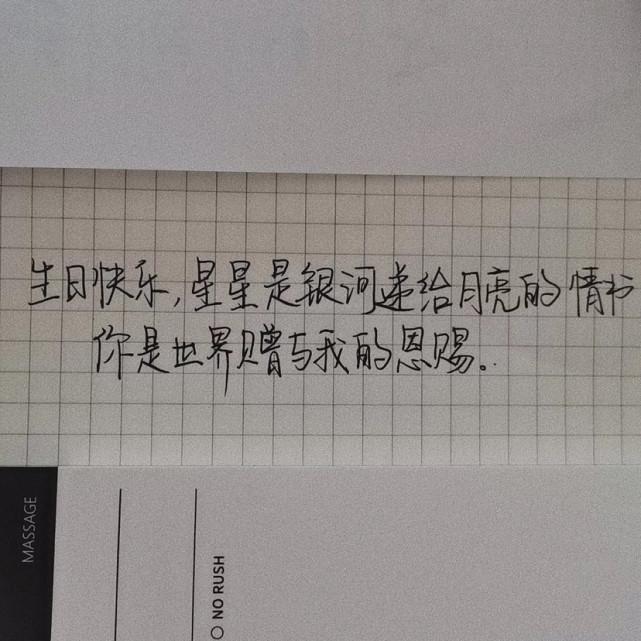 生日快乐,星星是银河递给月亮的情书
你是世界赠与我的恩赐。
MASSAGE
NO RUSH